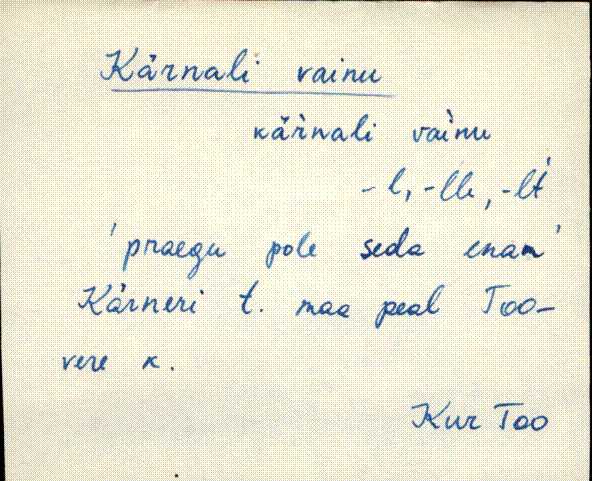 Kärnali vainu
kä̀rnali vaìnu
-l, -lle, -lt
'praegu pole seda enam'
Kärneri t. maa peal Too-
vere k.
Kur Too